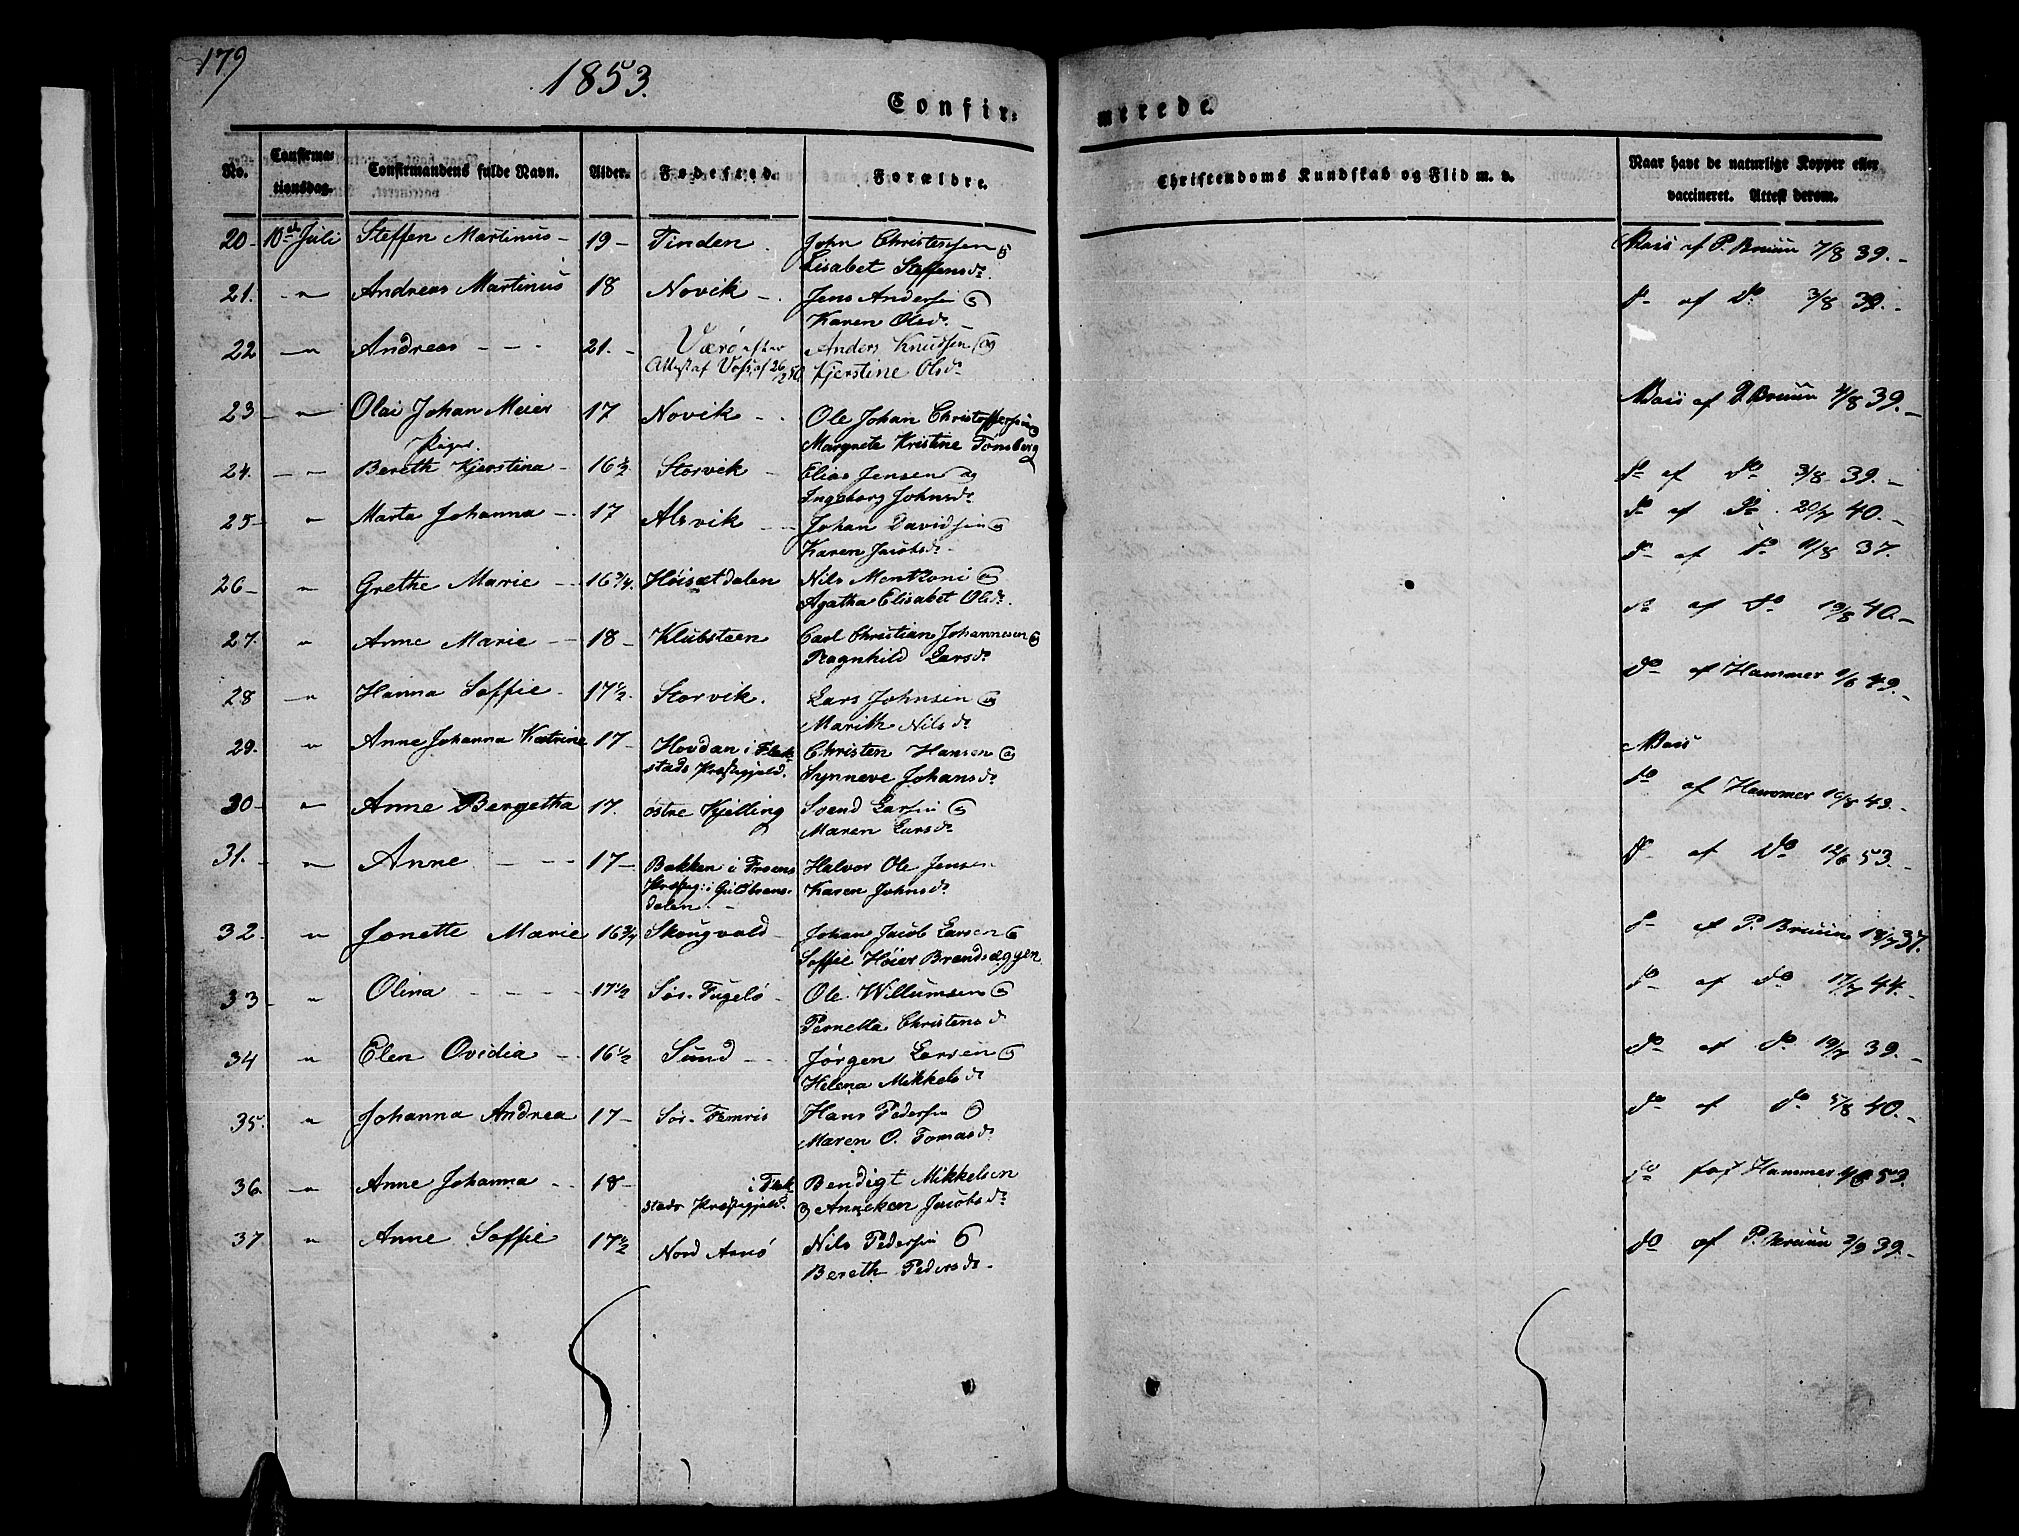 179
1853.
Confir-
merede.
No.
Confirma-
tionsdag.
Confirmandens fulde Navn.
Alder.
Fødested.
Forældre.
Christendoms Kundskab og Flid m. v.
Naar havt de naturlige Kopper eller
vaccineret. Attest derom.
20- 10de Juli Steffen Martinus- 19- Tinden John Christensen
Lisabet Steffensdr.
af P. Bruun 7/8 39.-
21. -"- Andreas Martinus 18 Novik -. Jens Andersen og
Karen Olsdr. -
do af do 3/8 39.-
22 -"- Andreas - - - 21. - Værø efter Anders Knudsen og
Attest af 26/2 50 Kjerstine Olsdr
23 -"- Olai Johan Meier 17 Novik - - Ole Johan Christoffersen og
Margrete Kristine Tønsberg
af P. Bruun 4/8 39.-
Piger.
24. -"- Bereth Kjerstina- 16½ Storvik Elias Jensen og
Ingeborg Johnsdr
do af do 3/8 39.-
25- " Marta Johanna - 17 Alsvik - - Johan Davidsen og
Karen Jacobsdr -
do af do 20/7 40.-
26- " Grethe Marie - 16 3/4. Høisætdalen Nils Mentzoni og
Agatha Elisabet Olsdr.
do af do 11/8 37.
27. " Anne Marie - - 18- Klubsteen Carl Christian Johannesen og
Ragnhild Larsdr
do af do 19/8 40.-
28 " Hanna Soffie - 17½. Storvik. Lars Johnsen og
Marith Nilsdr
do af Hammer 49.-
29. " Anne Johanna Katrine 17- Hovdan i Flak-
stads Præstegjæld. Christen Hansen og
Synneve Johansdr
30- " Anne Bergetha 17. østre Kjelling Svend Larsen og
Maren Larsdr
do af Hammer 10/8 43.-
31. -"- Anne - - - 17- Bakken i Froens
Præsteg: i Gulbrans-
dalen. - Halvor Ole Jensen
Karen Johnsdr
do af do 12/6 53.-
32- " Jonette Marie 16 3/4 Skougvold- Johan Jacob Larsen og
Soffie Høier Brandsæggen
do af P. Bruun 18/7 37.
33- " Olina - - - 17½ Sør-Fugelø- Ole Willumsen og
Pernella Christensdr
do af do 17/7 44.-
34 " Elen Ovidia - 16½ Sund - - Jørgen Larsen og
Helena Mikkelsdr
do af do 19/7 39.-
35. " Johanna Andrea 17- Sør-Femris Hans Pedersen og
Maren O. Tomasdr
do af do 5/8 40.-
36. -"- Anne Johanna - - 18- i Flak-
stads Præstegjæld. Bendigt Mikkelsen
og Anneken Jacobsdr
do Hammer 53.
37 " Anne Soffie 17½ Nord Arnø Nils Pedersen og
Bereth Pedersdr -
do af P. Bruun 2/9 39.-